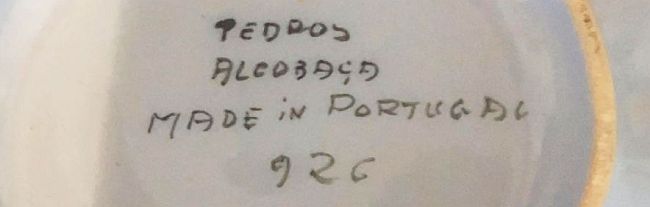 PEDROS
ALCOBAÇA
MADE iN PORTUGAL
926